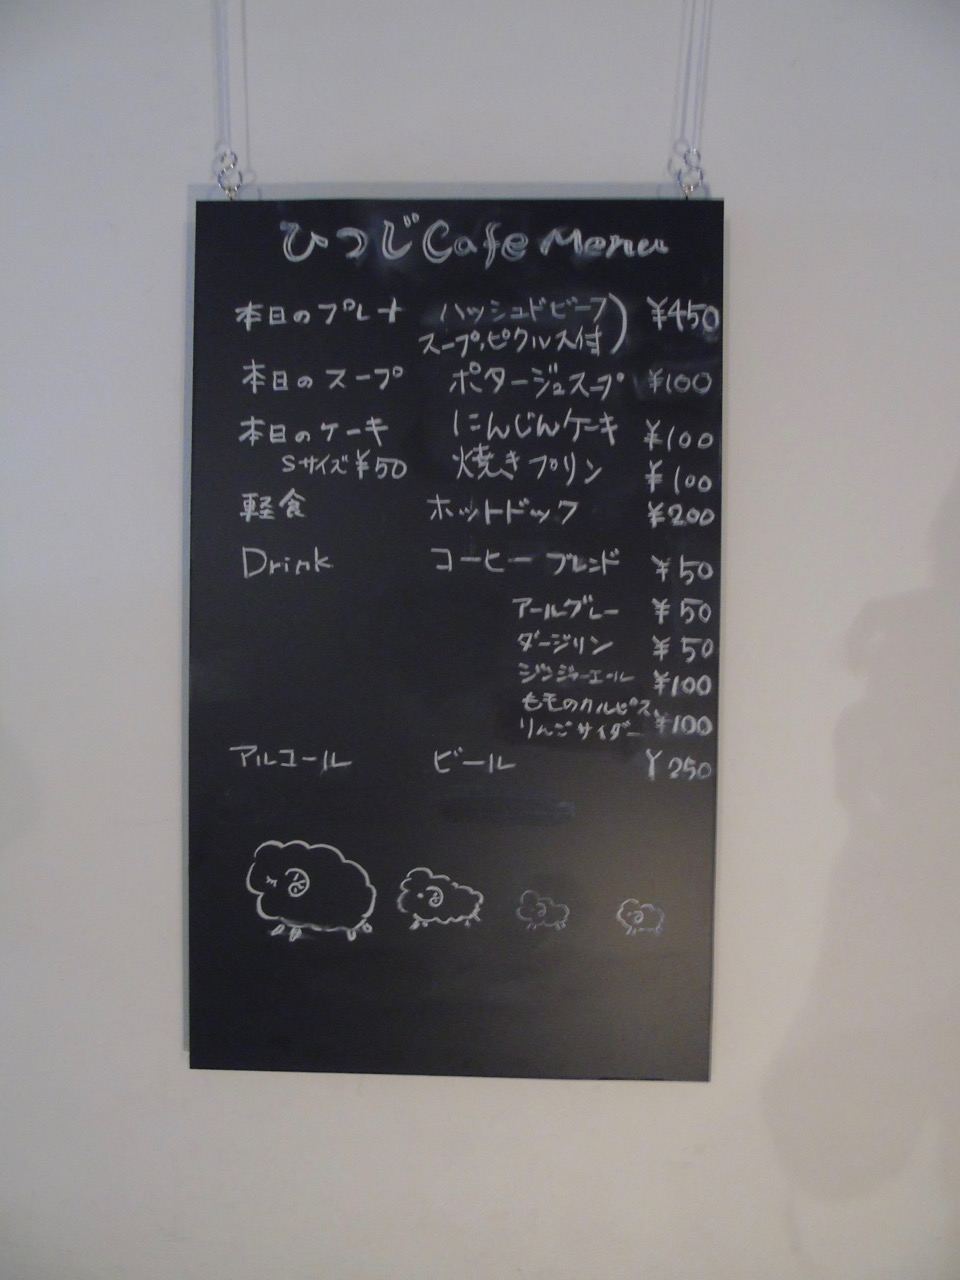 ひつじCafe Menu
本日のプレート ハッシュドビーフ ¥450
スープ、ピクルス付
本日のスープ ポタージュスープ ¥100
本日のケーキ にんじんケーキ ¥100
Sサイズ¥50 焼きプリン ¥100
軽食 ホットドック ¥200
Drink コーヒー ブレンド ¥50
アールグレー ¥50
ダージリン ¥50
ジンジャーエール ¥100
もものカルピス、
りんごサイダー ¥100
アルコール ビール ¥250